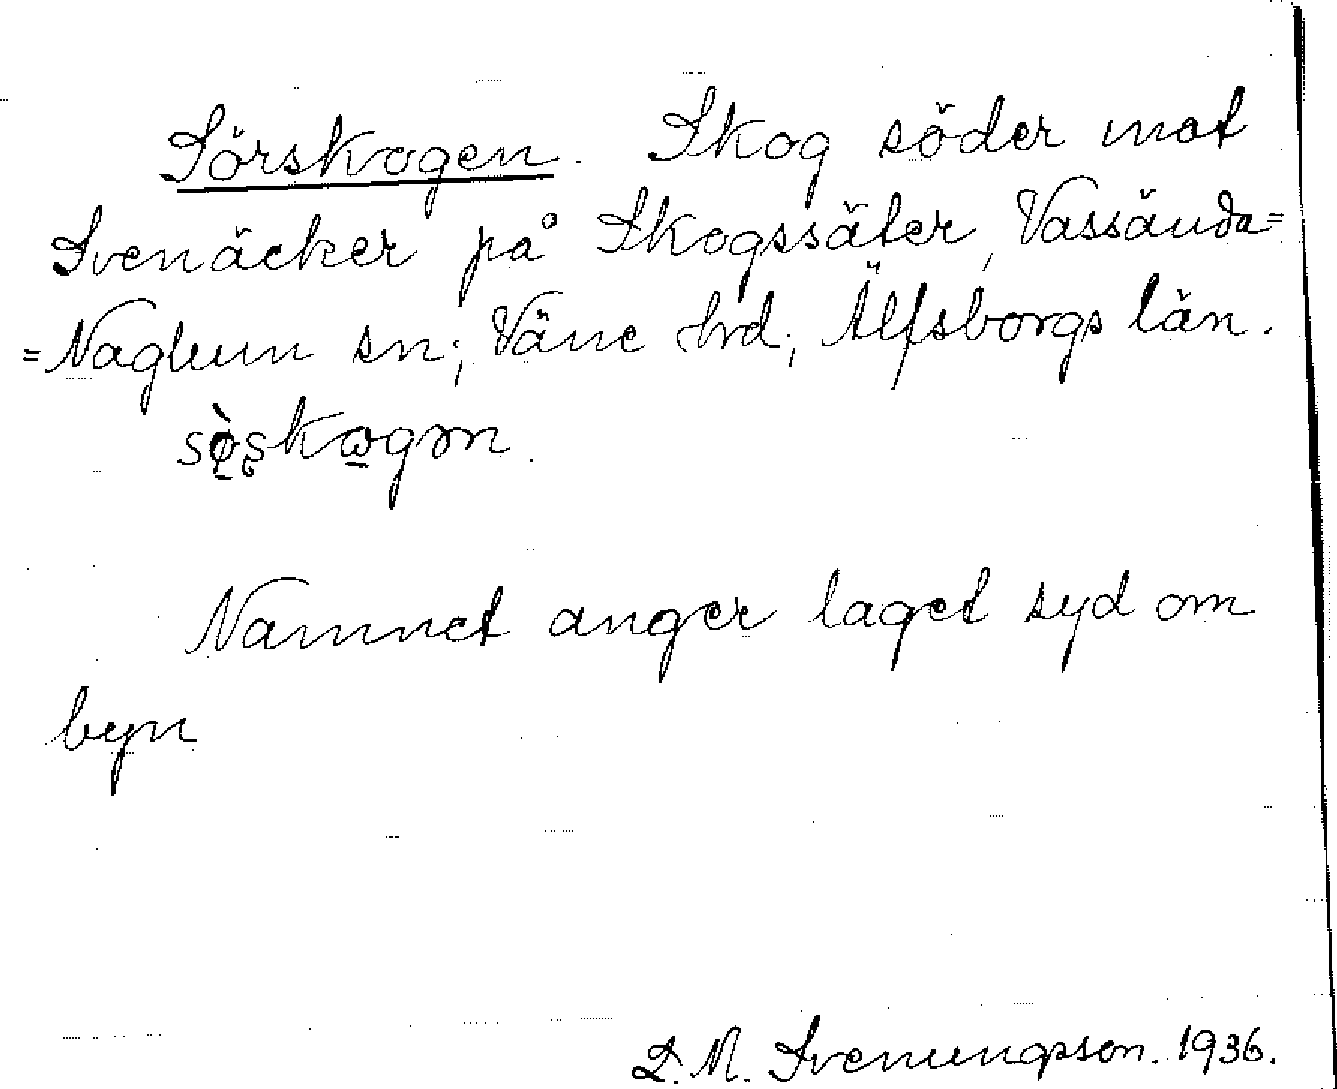 Sörskogen. Skog söder mot
Svenäcker på Skogssäter, Vassända=
=Naglum sn; Väne hrd; Älfsborgs län.
sø̀ʂkωgən.
Namnet anger läget syd om
byn
D. M. Svenungsson. 1936.